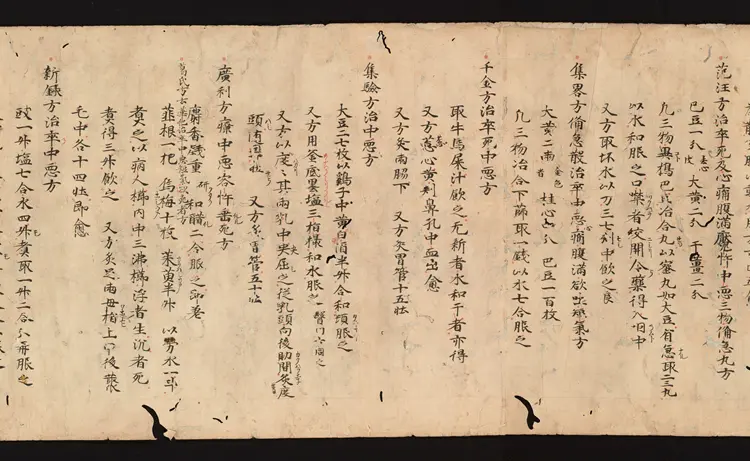 范汪方治卒死及心痛腹滿魘忤中惡三物備急丸方
巴豆一分 去心皮 大黄二分 干薑二分
凡三物異搗巴豆冶合丸以蜜丸如大豆有急取二三丸
以水和服之口噤者絞開令藥得入咽中
又方取坏水以刀三七刻中飲之良
集略方備急散治卒中惡痛腹滿欲出氣方
大黄二兩 金色者 桂心一分 巴豆一百枚
凡三物冶合下篩取一錢以水七合服之
千金方治卒死中惡方
取牛馬屎汁飲之无新者水和干者亦得
又方葱心黄刺鼻孔中血出愈
又方灸兩脇下 又方灸胃管十五壮
集驗方治中惡方
大豆二七枚以鷄子中黄白酒半升合和頓服之
又方用釜底墨塩二指樣和水服之
又方以度之其兩乳中央屈之從乳頭向後肋間灸度
頭隨壮 又方灸胃管五十壮
廣利方療中惡客忤垂死方
麝香錢重 研 和醋一合服之即差
韮根一把 烏梅十枚 茱萸半升 以勞水一斗
煮之以病人櫛内中三沸櫛浮者生沉者死
煮得三升飲之 又方灸足兩母指上甲後聚
毛中各十四壮即愈
新錄方治卒中惡方
豉一升塩七合水四升煮取一升二合分再服之